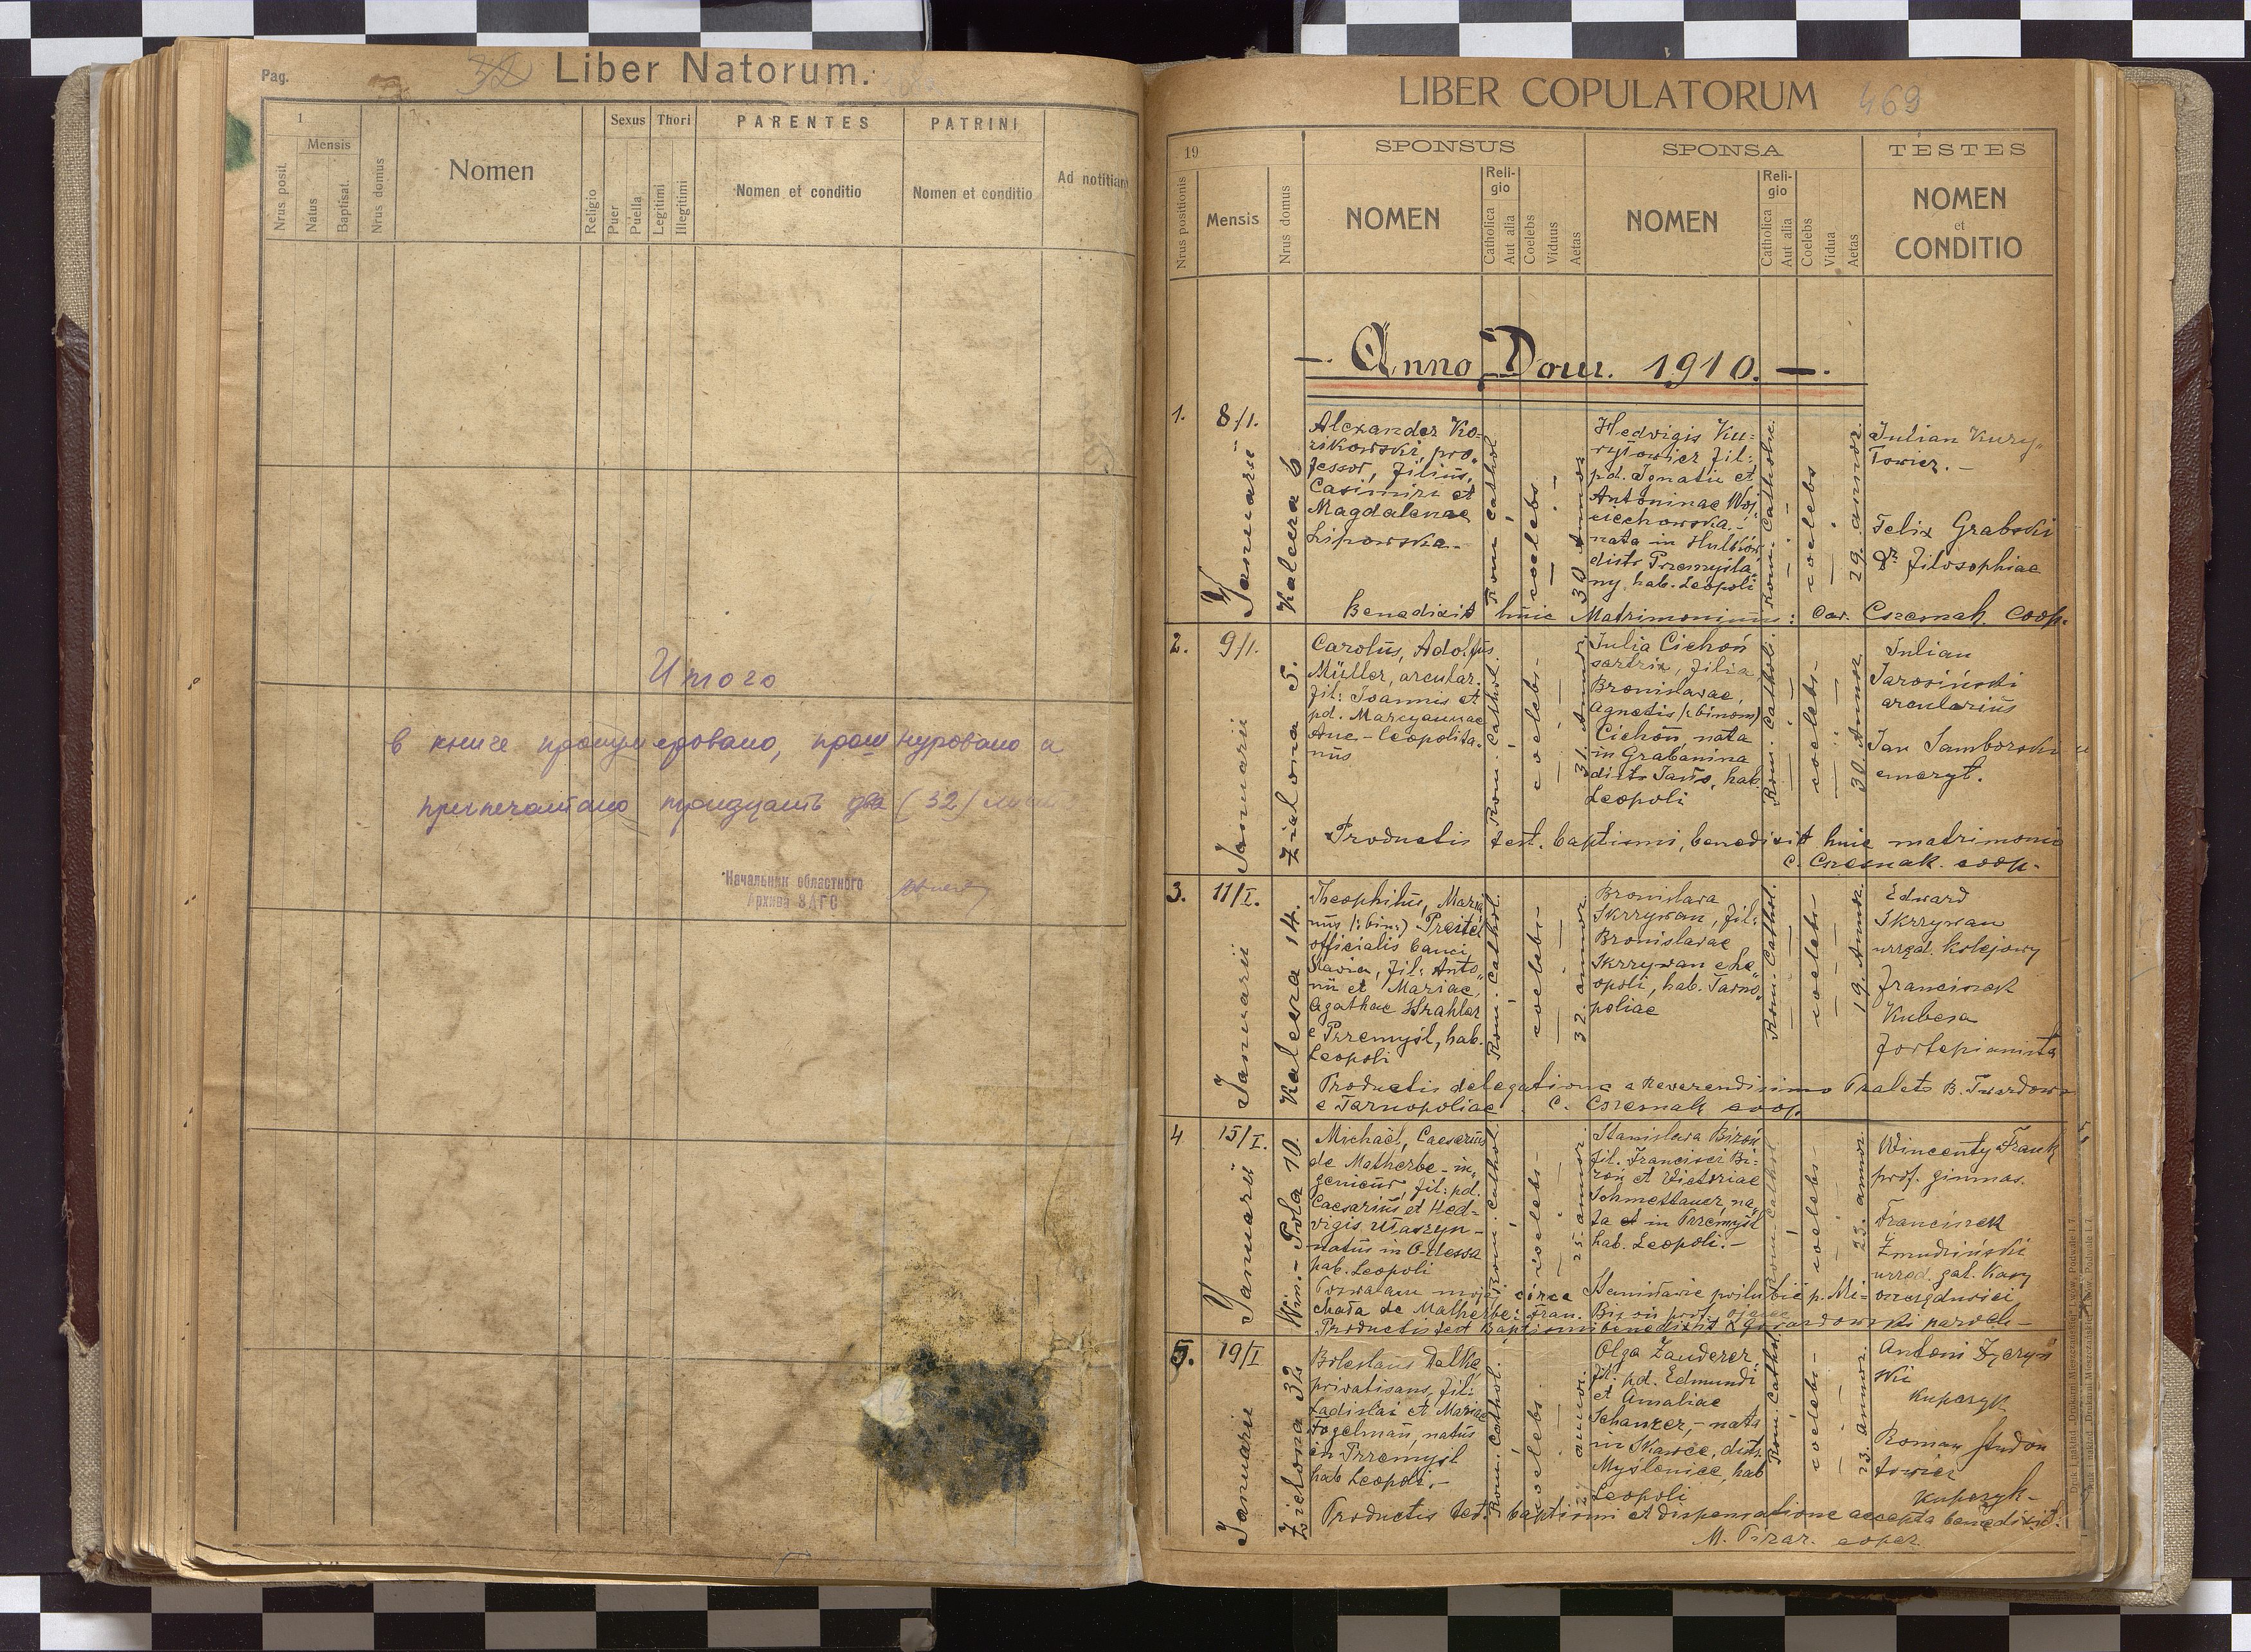 Pag.
32
Liber Natorum.
1
Mensis
Nrus posit.
Natus
Baptisat.
Nrus domus
Nomen
Religio
Sexus
Puer
Puella
Thori
Legitimi
Illegitimi
PARENTES
Nomen et conditio
PATRINI
Nomen et conditio
Ad notitiam
Итого
в книге пронумеровано, прошнуровано и
припечатано тридцать два (32)
Начальник областного
Архива ЗАГС
LIBER COPULATORUM
469
19
Nrus positionis
Mensis
Nrus domus
SPONSUS
NOMEN
Reli-
gio
Catholica
Aut alia
Coelebs
Viduus
Aetas
SPONSA
NOMEN
Reli-
gio
Catholica
Aut alia
Coelebs
Vidua
Aetas
TESTES
NOMEN
et
CONDITIO
Anno Dom. 1910.
1.
8/1.
Januarii
Kalecza 6
Alexander Ko-
zikowski, pro-
fessor, filius,
Casimiri et
Magdalenae
Lipowska-
Rom Cathol
coelebs
30 Annor
Hedvigis Ku-
ryłowicz fil:
pd. Ignatii et
Antoninae Woj-
ciechowska.-
nata in Hulków
distr Przemyśla-
ny, hab. Leopoli
Rom. Catholic.
coelebs
29. annor.
Julian Kury-
łowicz.-
Felix Grabski
Dr. filosophiae
Benedixit huic Matrimonium: Car. Czesnak coop.
2.
9/1.
Januarii
Zielona 5.
Carolus, Adolfus
Müller, arcular.
fil: Joannis et
pd. Maryannae
Anc - Leopolita-
nus
Rom. Cathol.
coelebs-
31. Annor.
Julia Cichoń
sartrix, filia
Bronislavae,
Agnetis (:binom)
Cichoń, nata
in Grabanina
distr Jasło, hab.
Leopoli
Rom. Catholi.
coelebs-
30. Annor.
Julian
Jarosiński
arcularius
Jan Samborski
emeryt.
Productis test. baptismi, benedixit huic matrimonio
C. Czesnak. coop.
3.
11/I.
Januarii
Kalecza 14.
Theophilus, Maria-
nus (:bin:) Preitel
officialis banci
Slavia, fil: Anto-
nii et Mariae,
Agathae Strahler
e Przemyśl, hab.
Leopoli
Rom. Cathol.
coelebs-
32. annor.
Bronislava
Skrzywan, fil:
Bronislavae
Skrzywan e Le-
opoli, hab. Tarno-
poliae
Rom. Cathol.
coelebs-
19. Annor.
Edward
Skrzywan
urzęd. kolejowy
Franciszek
Kubesa
fortepianista
Productis delegatione a Reverendissimo Pralato B. Twardow
e Tarnopoliae. C. Czesnak coop.
4
15/I.
Januarii
Wim.- Pola 10.
Michaël, Caesarius
de Matherbe - in-
genieur, fil: pd.
Caesarius et Hed-
vigis Ułaszyn-
natus in Odessa
hab. Leopoli
Rom. Cathol.
coelebs-
25. annor.
Stanislava Bizoń
fil. Francisci Bi-
zoń et Victoriae
Schmettauer, na-
ta et in Przemyśl
hab. Leopoli.-
Rom. Cathol.
coelebs-
23. annor.
Wincenty Frank
prof. gimnas.
Franciszek
Żmudziński
urzęd. gal. Kasy
oszczędności
Pozwalam mojej córce Stanisławie poślubić p. Mi-
chała de Matherbe: Fran. Bizoń prof. ojciec
Productis test Baptismi benedixit Gwardowski paroch-
5.
19/I
Januarii
Zielona 32
Boleslaus Dalke
privatisans, fil:
Ladislai et Mariae
Fogelman, natus
in Przemyśl
hab Leopoli.-
Rom. Cathol.
coelebs.
27 annor.
Olga Zauderer
fil. pd. Edmundi
et Amaliae
Schanzer, - nata
in Skawce, distr.
Myślenice, hab
Leopoli
Rom. Cathol.
coelebs-
23. annor.
Antoni
ski
Kupczyk
Roman
Kupczyk-
Productis test. baptismi et dispensatione accepta benedixit.
M. Pizar. cooper.